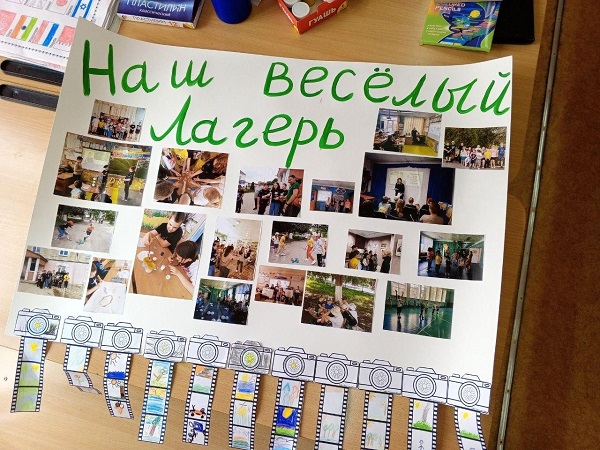 ПЛАСТИЛИН
КЛАССИЧЕСКИЙ
ГУАШЬ
PENCILS
Наш весёлый
Лагерь